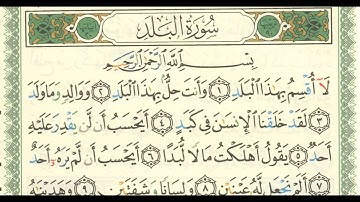 سُورَةُ الْبَلَدِ
بِسْمِ اللَّهِ الرَّحْمَٰنِ الرَّحِيمِ
لَآ أُقْسِمُ بِهَٰذَا ٱلْبَلَدِ ١ وَأَنتَ حِلُّۢ بِهَٰذَا ٱلْبَلَدِ ٢ وَوَالِدٍ وَمَا وَلَدَ
٣ لَقَدْ خَلَقْنَا ٱلْإِنسَٰنَ فِي كَبَدٍ ٤ أَيَحْسَبُ أَن لَّن يَقْدِرَ عَلَيْهِ
أَحَدٌ ٥ يَقُولُ أَهْلَكْتُ مَالًا لُّبَدًا ٦ أَيَحْسَبُ أَن لَّمْ يَرَهُۥٓ أَحَدٌ
٧ أَلَمْ نَجْعَل لَّهُۥ عَيْنَيْنِ ٨ وَلِسَانًا وَشَفَتَيْنِ ٩ وَهَدَيْنَٰهُ